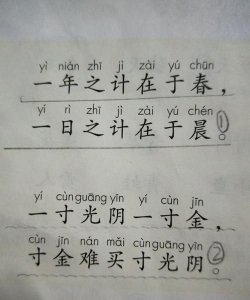 yì nián zhī jì zài yú chūn
一年之计在于春，
yí rì zhī jì zài yú chén
一日之计在于晨。①
yí cùn guāng yīn yí cùn jīn
一寸光阴一寸金，
cùn jīn nán mǎi cùn guāng yīn
寸金难买寸光阴。②